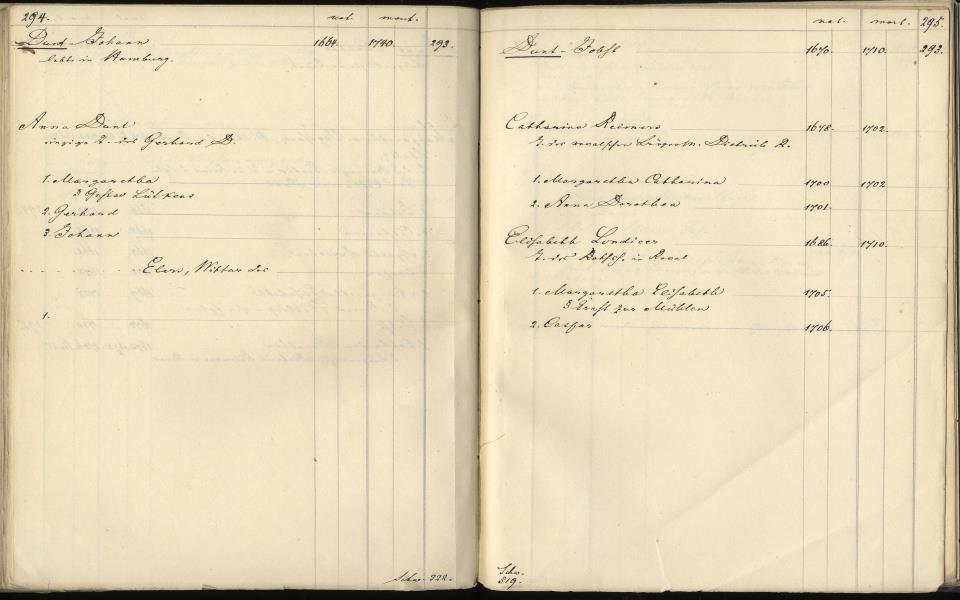 294.
nat. mort.
Dunt - Johann 1664. 1740. 293.
lebte in Hamburg.
Anna Dunt
einzige T. des Gerhard D.
1. Margaretha
Gustav Lütkens
2. Gerhard
3. Johann
Elers, Wittwe des
1.
Schw. 222.
nat. mort. 295.
Dunt - Jobst 1670. 1710. 293.
Catharina Reimers 1678. 1702.
T. des Dietrich R.
1. Margaretha Catharina 1700 1702
2. Anna Dorothea 1701.
Elisabeth Londicer 1686. 1710.
T. des Rathsh. in Reval
1. Margaretha Elisabeth 1705.
Ernst zur Mühlen
2. Caspar 1706.
Schw.
319.